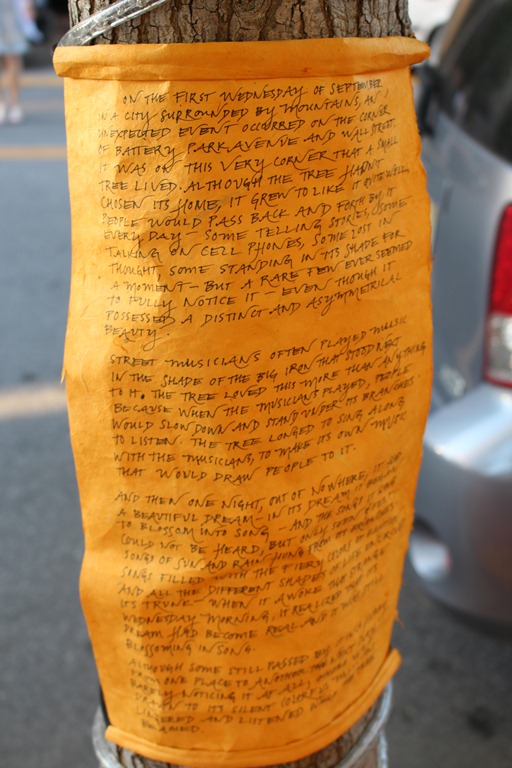 ON THE FIRST WEDNESDAY OF SEPTEMBER
IN A CITY SURROUNDED BY MOUNTAINS, AN
UNEXPECTED EVENT OCCURRED ON THE CORNER
OF BATTERY PARK AVENUE AND WALL STREET.
IT WAS ON THIS VERY CORNER THAT A SMALL
TREE LIVED. ALTHOUGH THE TREE HADN'T
CHOSEN ITS HOME, IT GREW TO LIKE IT QUITE WELL.
PEOPLE WOULD PASS BACK AND FORTH BY IT
EVERY DAY - SOME TELLING STORIES, SOME
TALKING ON CELL PHONES, SOME LOST IN
THOUGHT, SOME STANDING IN ITS SHADE FOR
A MOMENT - BUT A RARE FEW EVER SEEMED
TO FULLY NOTICE IT - EVEN THOUGH IT
POSSESSED A DISTINCT AND ASYMMETRICAL
BEAUTY.
STREET MUSICIANS OFTEN PLAYED MUSIC
IN THE SHADE OF THE BIG IRON THAT STOOD NEXT
TO IT. THE TREE LOVED THIS MORE THAN ANYTHING
BECAUSE WHEN THE MUSICIANS PLAYED, PEOPLE
WOULD SLOW DOWN AND STAND UNDER ITS BRANCHES
TO LISTEN. THE TREE LONGED TO SING ALONG
WITH THE MUSICIANS, TO MAKE ITS OWN MUSIC
THAT WOULD DRAW PEOPLE TO IT.
AND THEN ONE NIGHT, OUT OF NOWHERE, IT HAD
A BEAUTIFUL DREAM - IN ITS DREAM IT BEGAN
TO BLOSSOM INTO SONG - AND THE SONGS IT SANG
COULD NOT BE HEARD, BUT ONLY SEEN
SONGS OF SUN AND RAIN HUNG FROM ITS BRANCHES
SONGS FILLED WITH THE FIERY COLORS OF
AND ALL THE DIFFERENT SHAPES OF LIFE
ITS TRUNK - WHEN IT AWOKE THAT
WEDNESDAY MORNING, IT REALIZED THAT ITS
DREAM HAD BECOME REAL AND IT WAS STILL
BLOSSOMING IN SONG.
ALTHOUGH SOME STILL PASSED BY IT
FROM ONE PLACE TO ANOTHER THE NEXT DAY
BARELY NOTICING IT AT ALL, OTHERS
DRAWN TO ITS SILENT COLORFUL
LINGERED AND LISTENED
BEAMED.